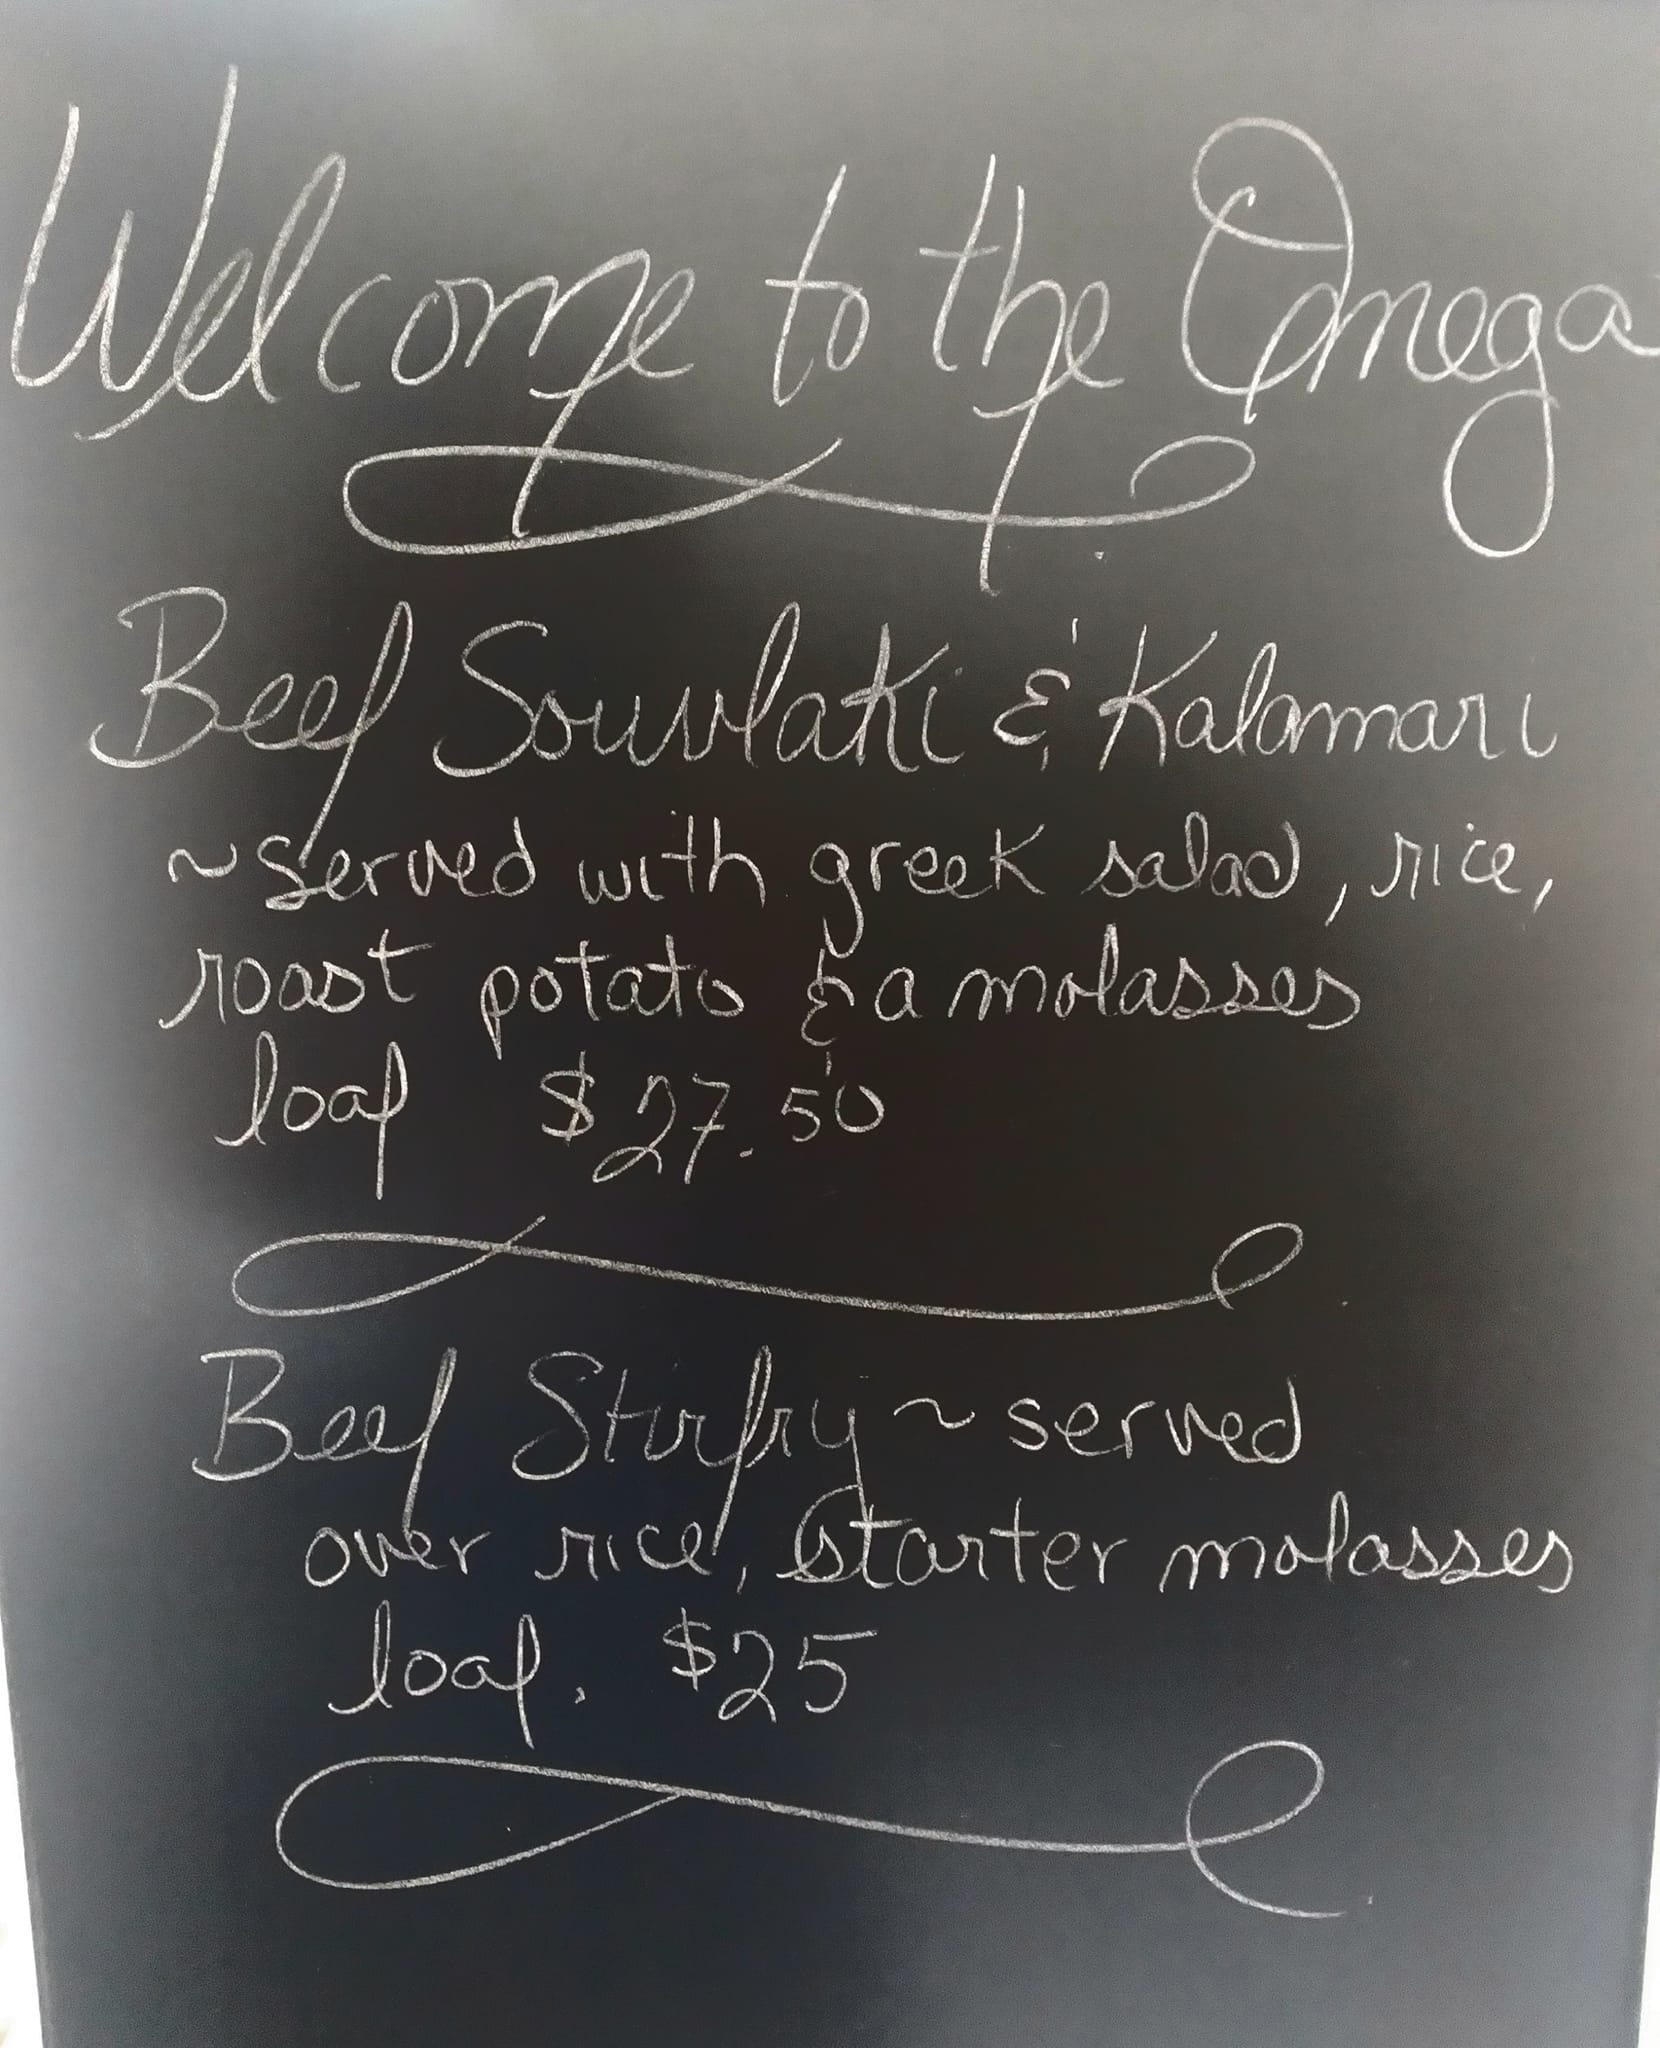 Welcome to the Omega
Beef Souvlaki & Kalamari
~served with greek salad, rice,
roast potato & a molasses
loaf $27.50
Beef Stirfry ~ served
over rice, starter molasses
loaf. $25